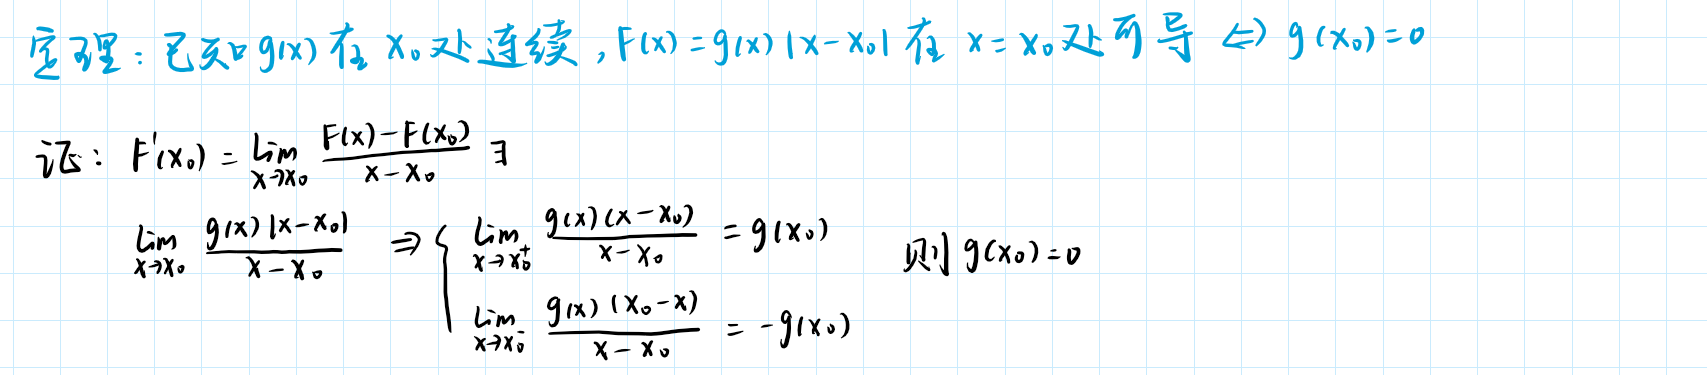 定理：已知g(x)在 x₀处连续，F(x)=g(x)|x-x₀| 在 x=x₀处可导 ⇔ g(x₀)=0
证：F'(x₀) = lim_{x→x₀} \frac{F(x)-F(x₀)}{x-x₀} ∃
lim_{x→x₀} \frac{g(x)|x-x₀|}{x-x₀} ⇒ { lim_{x→x₀⁺} \frac{g(x)(x-x₀)}{x-x₀} = g(x₀) 则 g(x₀)=0
lim_{x→x₀⁻} \frac{g(x)(x₀-x)}{x-x₀} = -g(x₀)